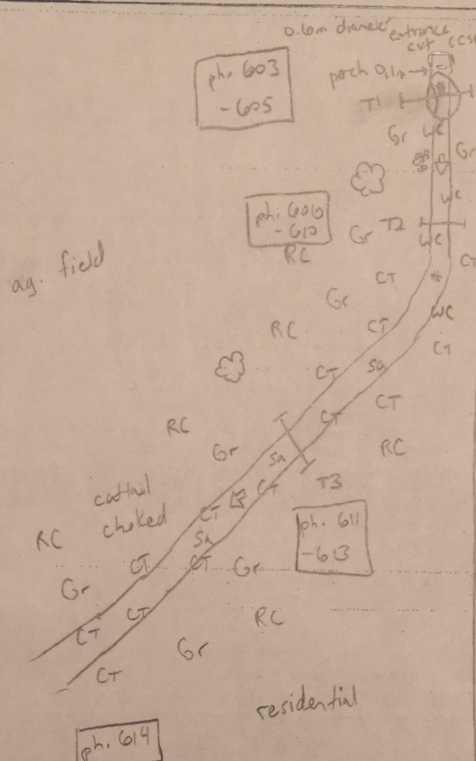 0.6m diameter entrance
cut
CCSP
ph. 603
- 605
perch 0.1m
T1
Gr
WC
Gr
WC
ph. 606
- 610
T2
Gr
WC
RC
CT
ag. field
CT
#
Gr
WC
CT
RC
CT
CT
Sa
CT
CT
RC
Gr
RC
Sa
T3
cattail
choked
CT
CT
RC
ph. 611
- 613
Sa
CT
CT
Gr
Gr
CT
RC
CT
Gr
CT
residential
ph. 614